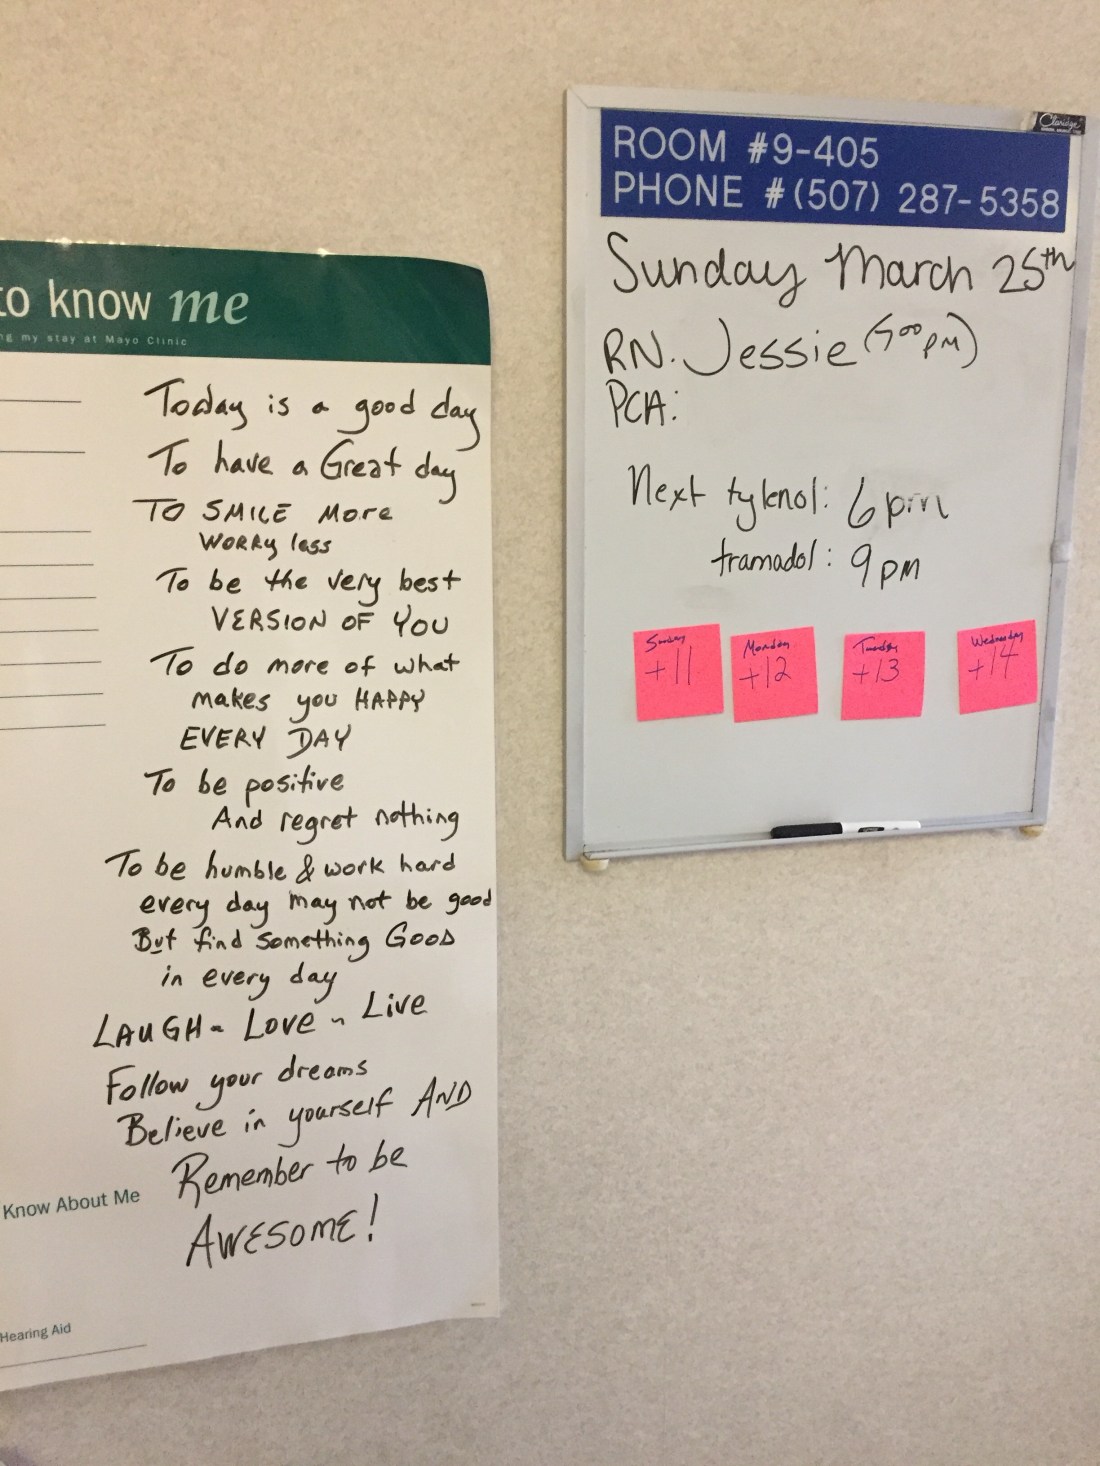 to know me
ng my stay at Mayo Clinic
Today is a good day
To have a Great day
TO SMILE More
WORRy less
To be the very best
VERSION OF YOU
To do more of what
makes you HAPPY
EVERY DAY
To be positive
And regret nothing
To be humble & work hard
every day may not be good
But find something GOOD
in every day
LAUGH ~ Love ~ Live
Follow your dreams
Believe in yourself AND
Remember to be
AWESOME!
Know About Me
Hearing Aid
Claridge
ROOM #9-405
PHONE #(507) 287-5358
Sunday March 25th
RN. Jessie (700 PM)
PCA:
Next tylenol: 6pm
tramadol: 9pm
Sunday
+11
Monday
+12
Tuesday
+13
Wednesday
+14